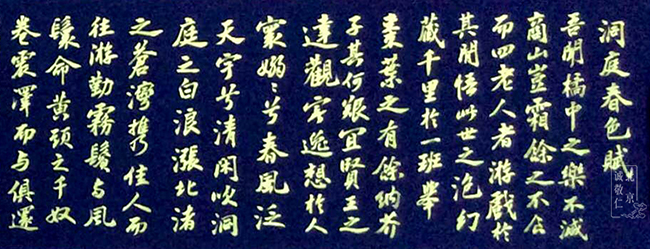 洞庭春色賦
吾聞橘中之樂不減
商山豈霜餘之不食
而四老人者游戲於
其間悟此世之泡幻
藏千里於一班舉
棗葉之有餘納芥
子其何艱宜賢王之
達觀寄逸想於人
寰嫋〻兮春風泛
天宇兮清閑吹洞
庭之白浪漲北渚
之蒼灣携佳人而
往游勤霧鬢与風
鬟命黃頭之千奴
卷震澤而与俱還
北京
诚敬仁